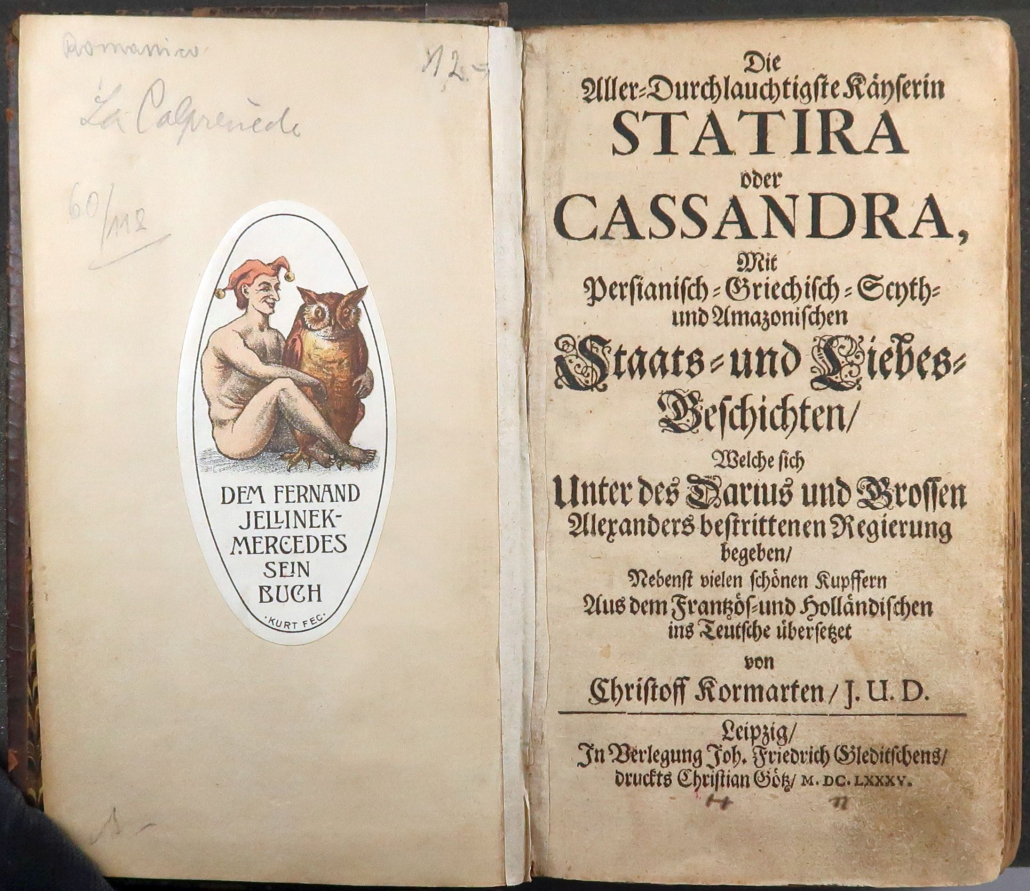 Romanico
12.-
La Calprenède
60/112
DEM FERNAND
JELLINEK-
MERCEDES
SEIN
BUCH
·KURT FEC·
Die
Aller-Durchlauchtigste Käyserin
STATIRA
oder
CASSANDRA,
Mit
Persianisch-Griechisch-Scyth-
und Amazonischen
Staats-und Liebes-
Geschichten/
Welche sich
Unter des Darius und Grossen
Alexanders bestrittenen Regierung
begeben/
Nebenst vielen schönen Kupffern
Aus dem Frantzös-und Holländischen
ins Teutsche übersetzet
von
Christoff Kormarten/ J. U. D.
Leipzig/
In Verlegung Joh. Friedrich Gleditschens/
druckts Christian Götz/ M. DC. LXXXV.